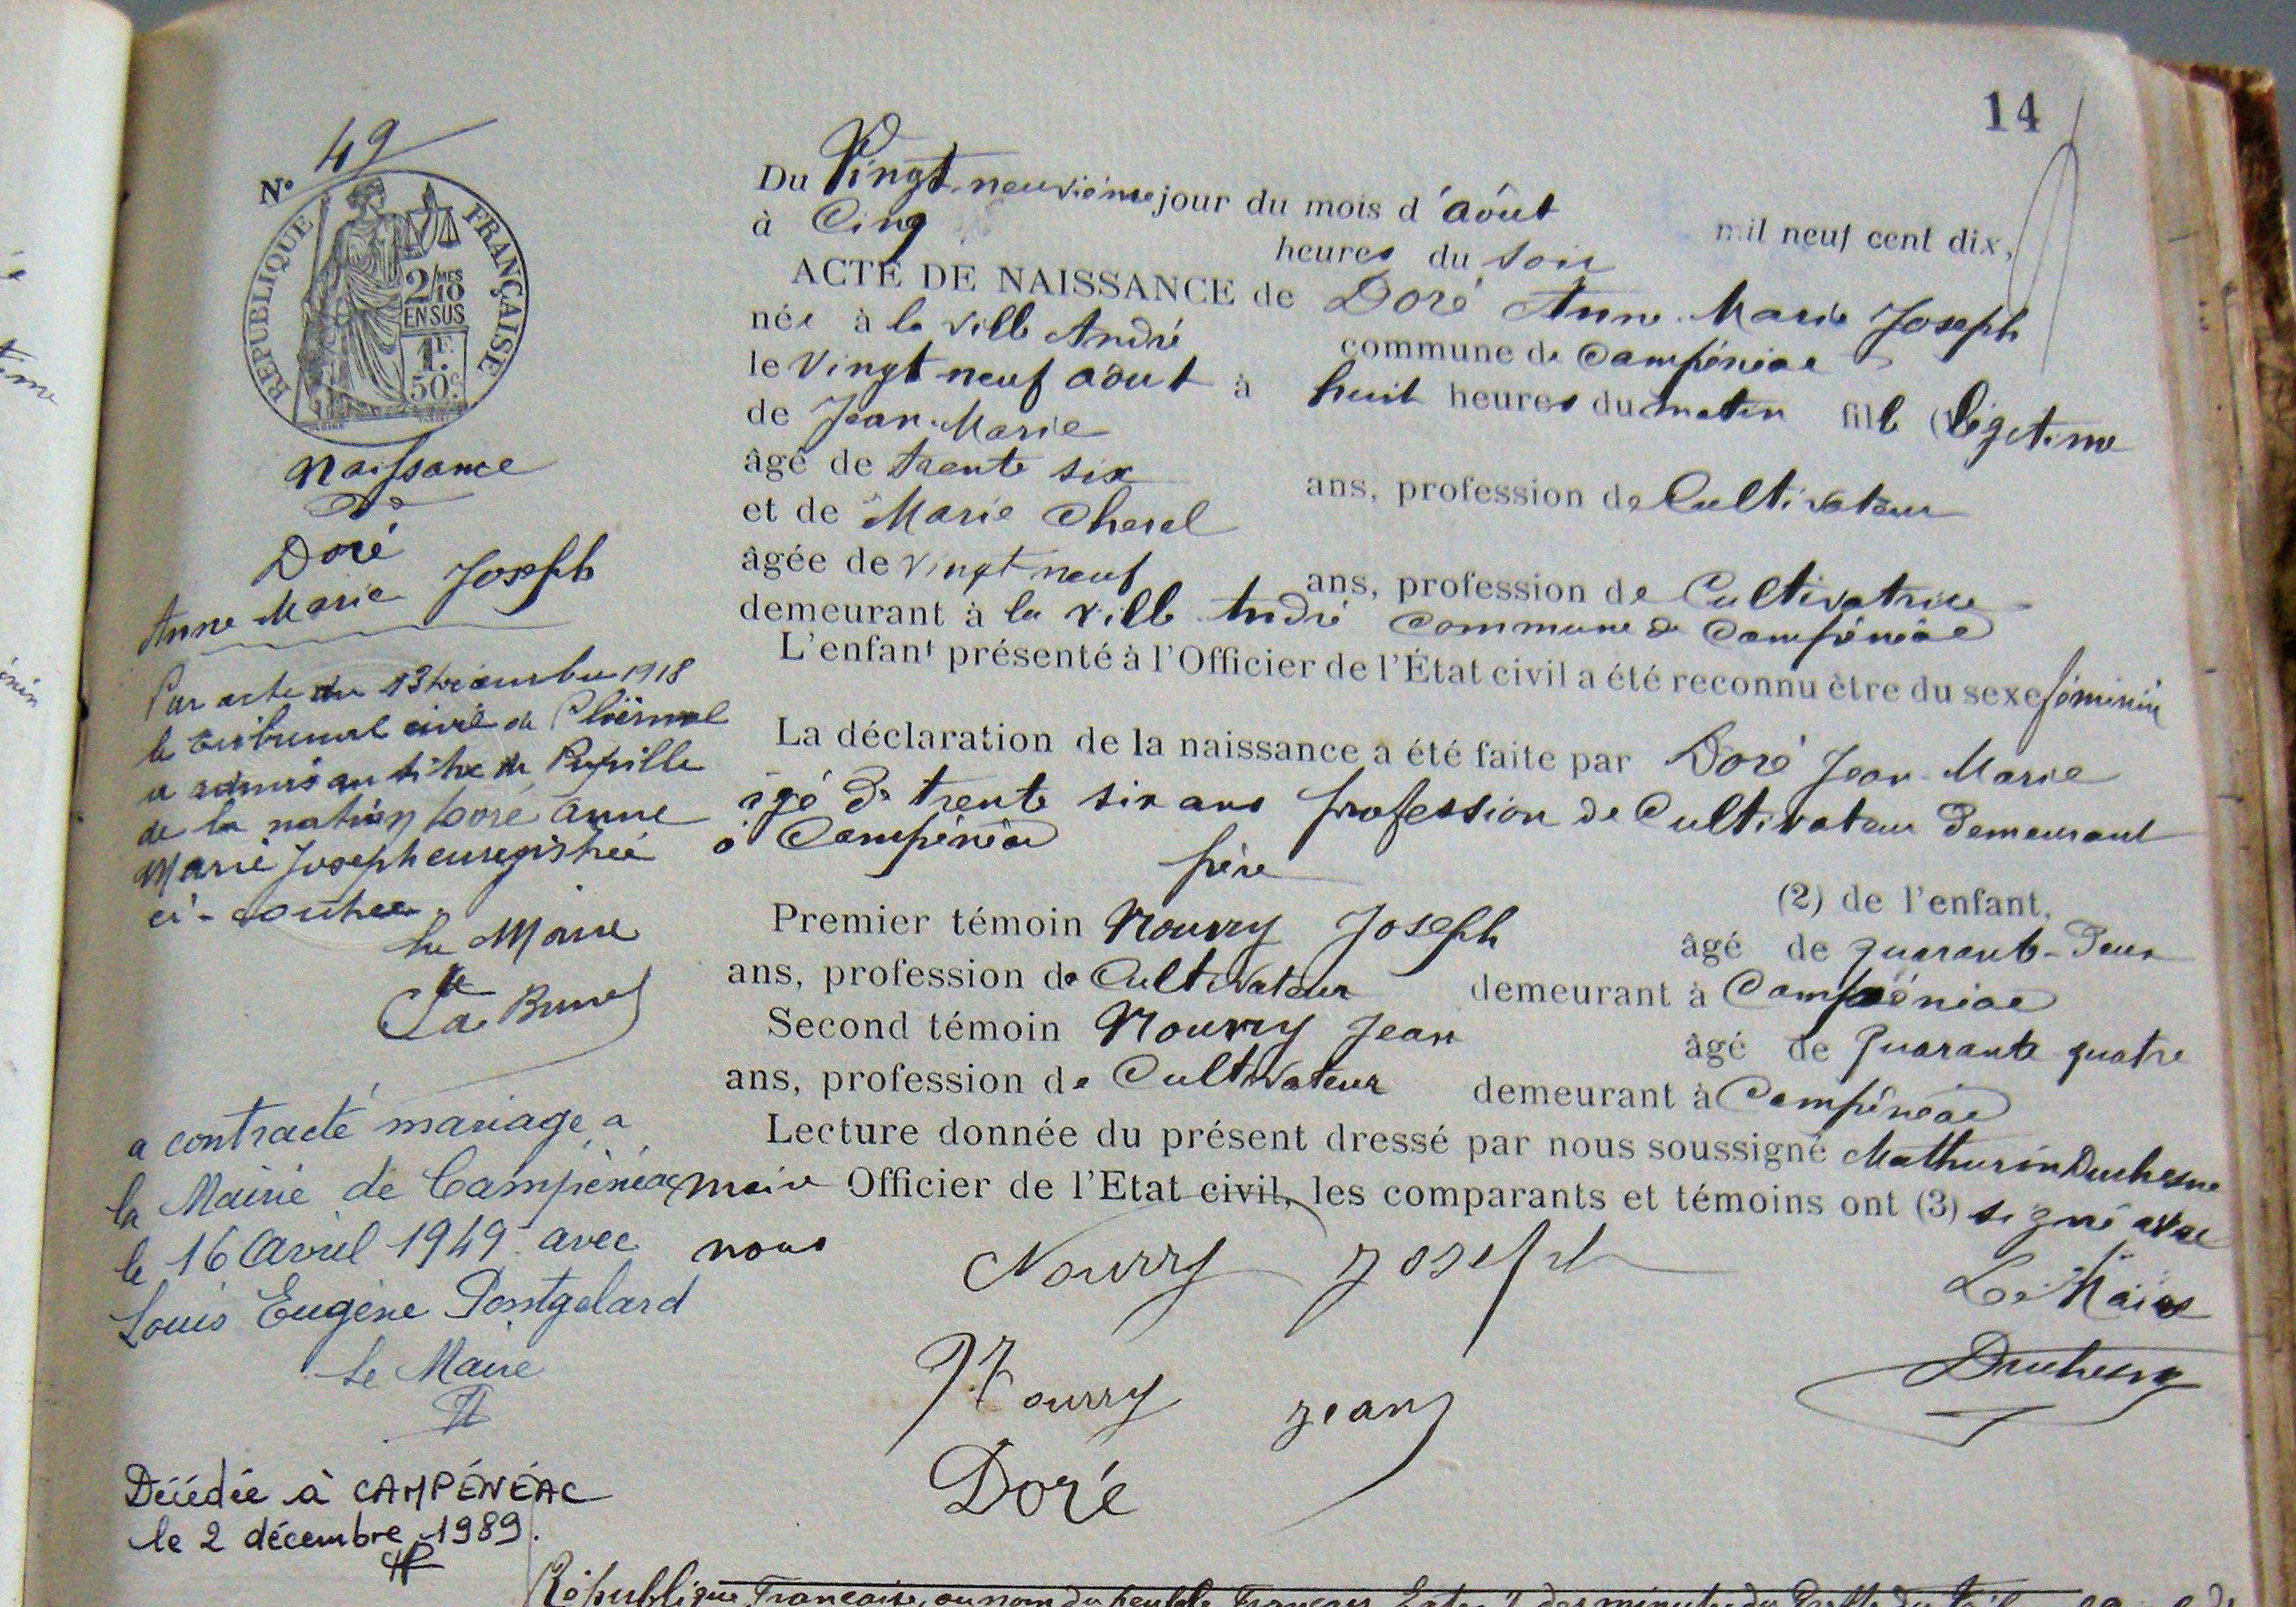 14
N° 49
RÉPUBLIQUE FRANÇAISE
2/10 MES
EN SUS
1F.
50c.
Naissance
De
Doré
Anne Marie Joseph
Par acte du 13 1918
le tribunal civil de Ploërmel
a admis au titre de Pupille
de la nation Doré Anne
Marie Joseph enregistrée
ci-contre.
Le Maire
a contracté mariage a
la Mairie de Campénéac
le 16 avril 1949 avec
Louis Eugène Pontgelard
Le Maire
Décédée à CAMPÉNÉAC
le 2 décembre 1989.
Du Vingt-neuvième jour du mois d'août mil neuf cent dix,
à Cinq heures du soir
ACTE DE NAISSANCE de Doré Anne Marie Joseph
née à la ville André commune de Campénéac
le Vingt neuf août à huit heures du matin fille (légitime
de Jean-Marie
âgé de trente six ans, profession de Cultivateur
et de Marie Cherel
âgée de vingt neuf ans, profession de Cultivatrice
demeurant à la ville André commune de Campénéac
L'enfant présenté à l'Officier de l'État civil a été reconnu être du sexe féminin
La déclaration de la naissance a été faite par Doré Jean-Marie
âgé de trente six ans profession de Cultivateur demeurant
à Campénéac père (2) de l'enfant,
Premier témoin Nourry Joseph âgé de quarante-deux
ans, profession de Cultivateur demeurant à Campénéac
Second témoin Nourry Jean âgé de quarante quatre
ans, profession de Cultivateur demeurant à Campénéac
Lecture donnée du présent dressé par nous soussigné Mathurin Duchesne
maire Officier de l'Etat civil, les comparants et témoins ont (3) signé avec
nous
Nourry Joseph
Le Maire
Nourry Jean
Duchesne
Doré
République Française, au nom du peuple Français